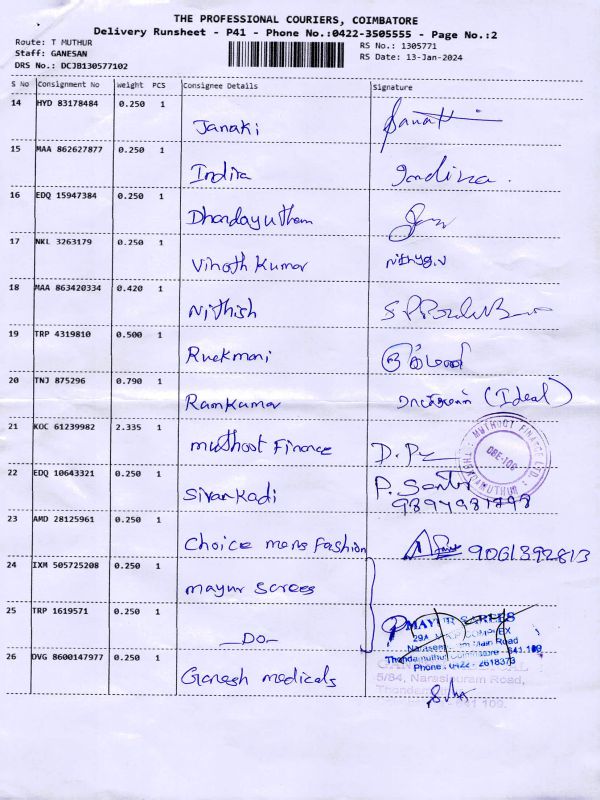 THE PROFESSIONAL COURIERS, COIMBATORE
Delivery Runsheet - P41 - Phone No.:0422-3505555 - Page No.:2
Route: T MUTHUR
Staff: GANESAN
DRS No.: DCJB130577102
RS No.: 1305771
RS Date: 13-Jan-2024
S No Consignment No Weight PCS Consignee Details Signature
14 HYD 83178484 0.250 1 Janaki
15 MAA 862627877 0.250 1 Indira Indira.
16 EDQ 15947384 0.250 1 Dhandayutham
17 NKL 3263179 0.250 1 Vinoth Kumar
18 MAA 863420334 0.420 1 Nithish
19 TRP 4319810 0.500 1 Ruckmani
20 TNJ 875296 0.790 1 Ramkumar (Ideal)
21 KOC 61239982 2.335 1 muthoot Finance
MUTHOOT FINANCE LTD.
THONDAMUTHUR
22 EDQ 10643321 0.250 1 Sivan Kadi P.
23 AMD 28125961 0.250 1 Choice mens Fashion 9061392813
24 IXM 505725208 0.250 1 mayur Sarees
25 TRP 1619571 0.250 1 -DO-
MAYUR SAREES
29A, COMPLEX
Main Road
Coimbatore - 641 109
Phone: 0422 - 2618373
26 DVG 8600147977 0.250 1 Ganesh medicals
5/84, Narasipuram Road,
641 109.